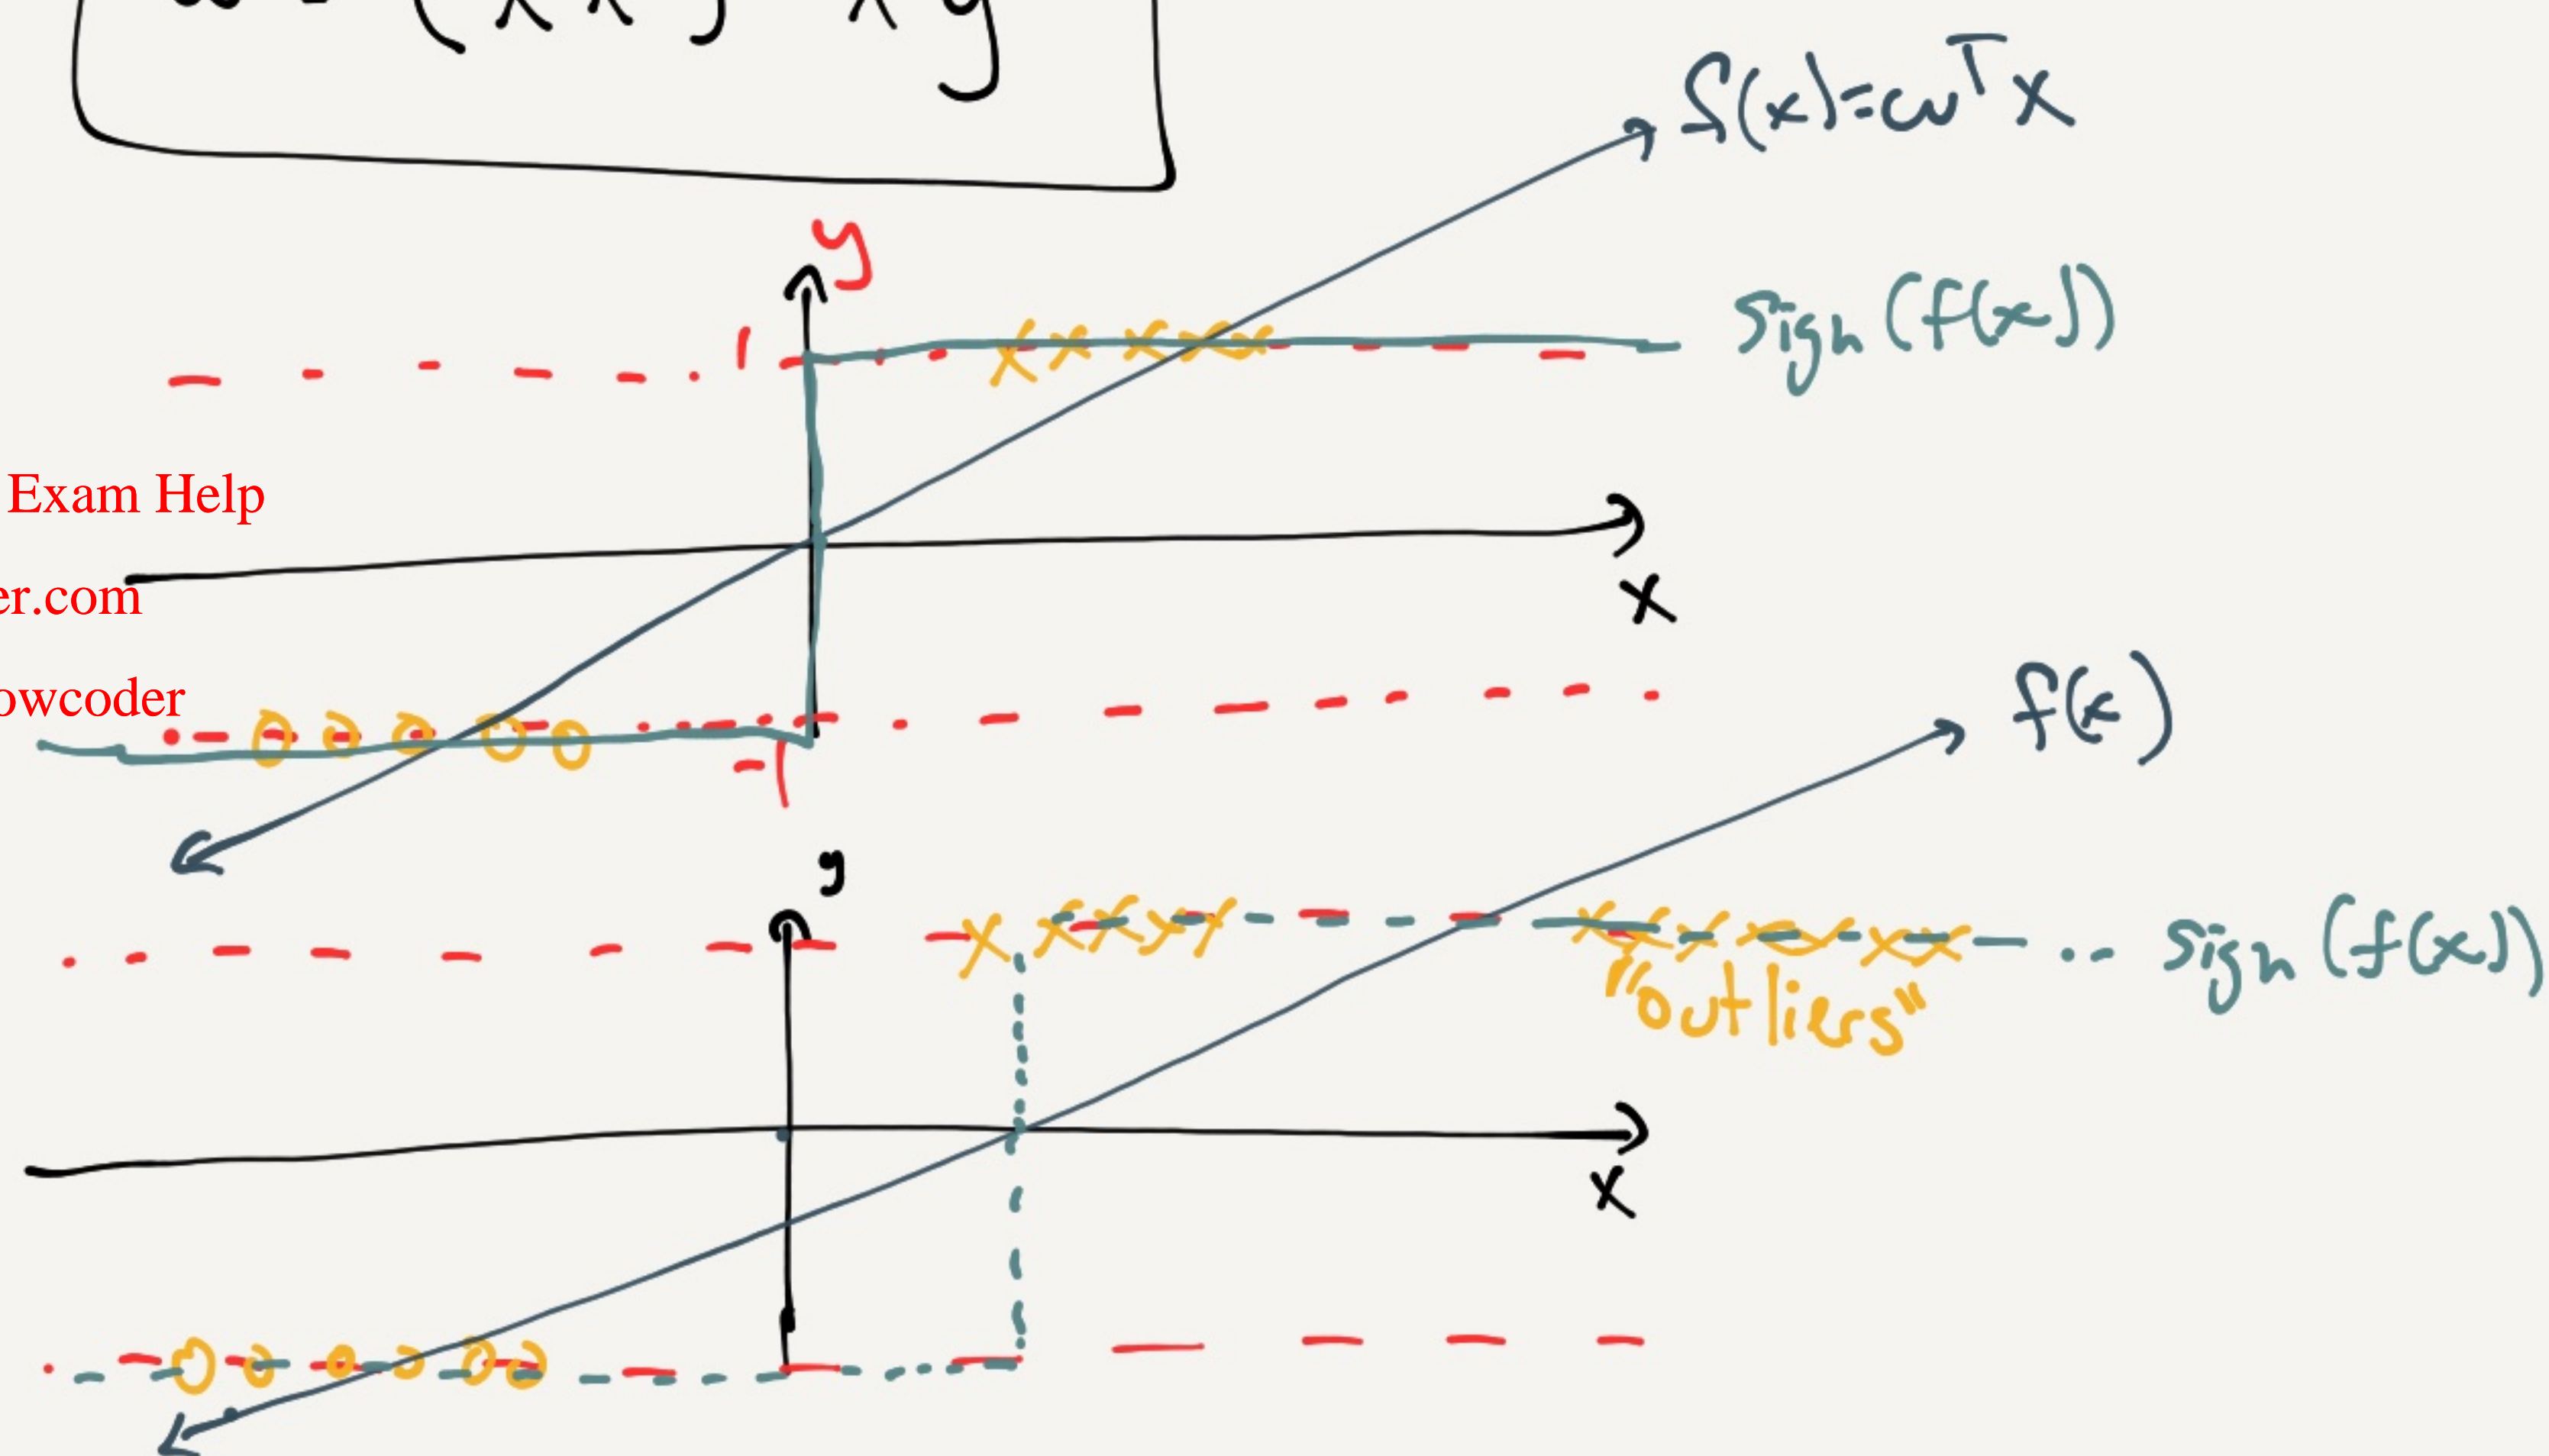 f(x)=ωᵀx
y
sign(f(x))
1
Exam Help
er.com
x
owcoder
f(x)
-1
y
sign(f(x))
"outliers"
x